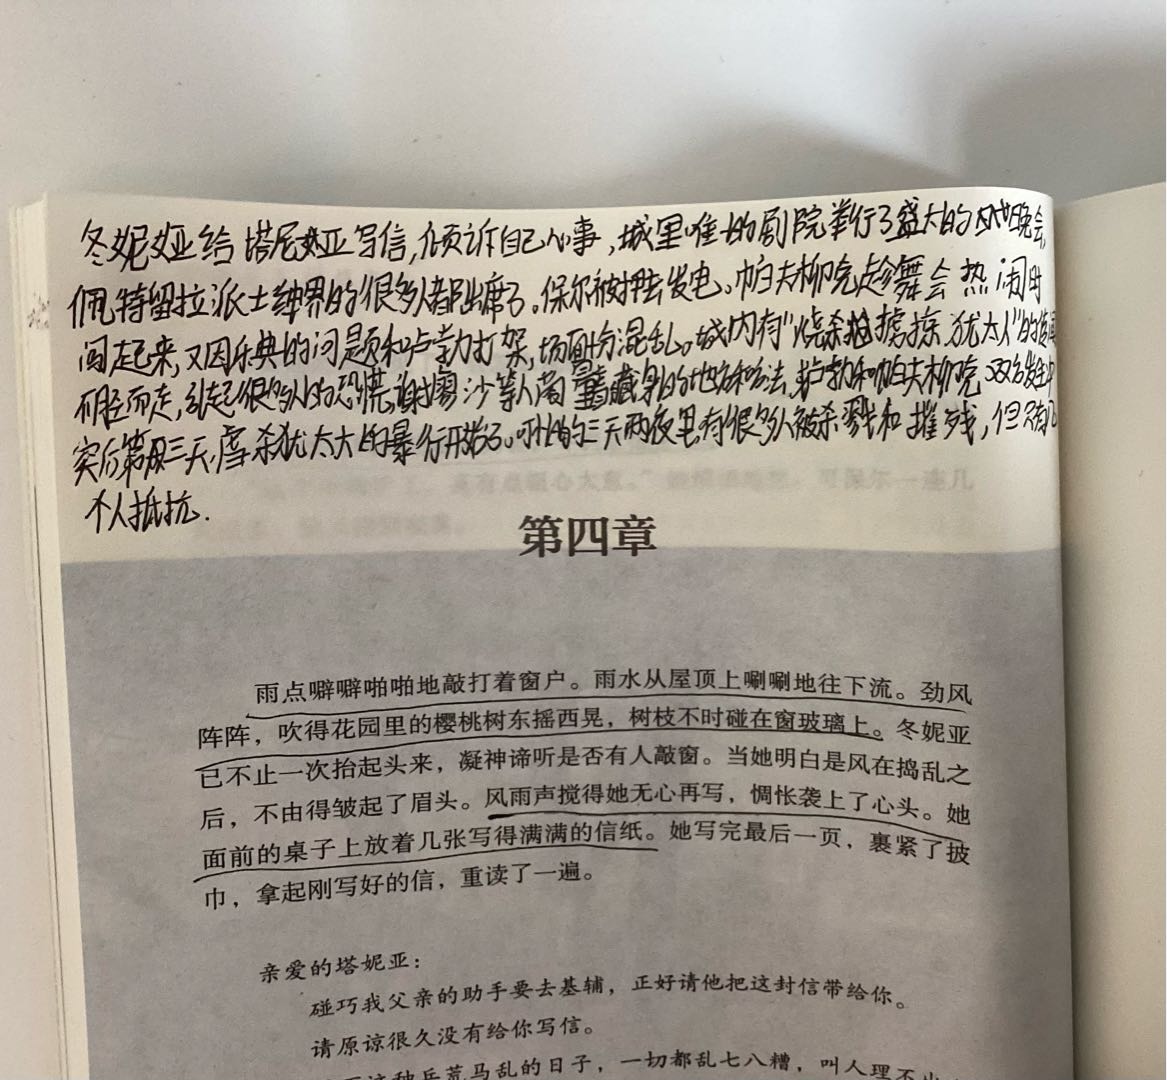 冬妮娅给塔尼娅写信,倾诉自己心事,城里唯一的剧院举行了盛大的 晚会,
佩特留拉派士绅界的很多人都出席了。保尔被押去发电。帕夫柳克趁舞会热闹时
闯起来,又因乐典的问题和卢勃打架,场面十分混乱。城内有"烧杀 掳掠犹太人"的传闻
不胫而走,引起很多人的恐慌,谢廖沙等人商量着藏身的地方和方法, 勃和帕夫柳克双方发生
实后第 三天,虐杀犹太人的暴行开始了。可怕的三天两夜里,有很多人被杀戮和摧残,但只有几
个人抵抗.
第四章
雨点噼噼啪啪地敲打着窗户。雨水从屋顶上唰唰地往下流。劲风
阵阵,吹得花园里的樱桃树东摇西晃,树枝不时碰在窗玻璃上。冬妮亚
已不止一次抬起头来,凝神谛听是否有人敲窗。当她明白是风在捣乱之
后,不由得皱起了眉头。风雨声搅得她无心再写,惆怅袭上了心头。她
面前的桌子上放着几张写得满满的信纸。她写完最后一页,裹紧了披
巾,拿起刚写好的信,重读了一遍。
亲爱的塔妮亚:
碰巧我父亲的助手要去基辅,正好请他把这封信带给你。
请原谅很久没有给你写信。
这种兵荒马乱的日子,一切都乱七八糟,叫人理不